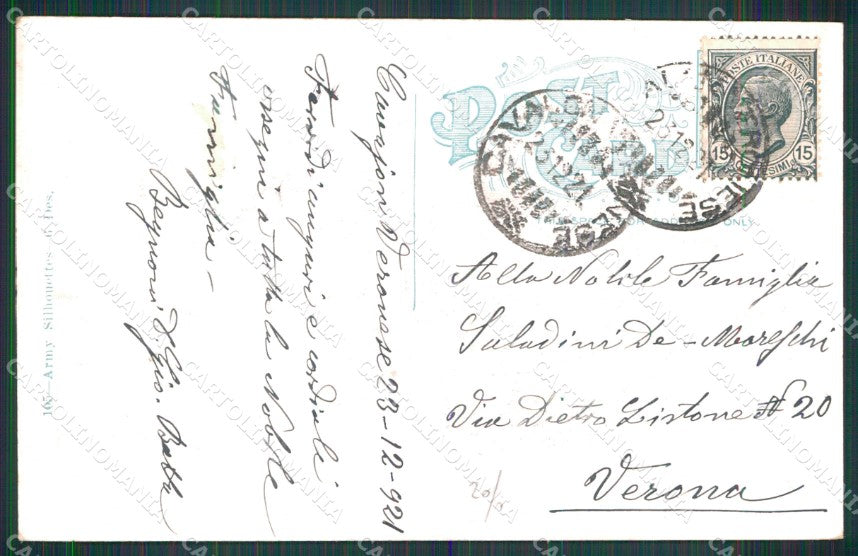 POST CARD
POSTE ITALIANE
15 15
CAVALON VERONESE
23.12.21
ONLY.
Cavajon Veronese 23-12-921
Fervidi auguri e cordiali
ossequi a tutta la Nobile
Famiglia -
Begnoni D. Gio. Batta
Alla Nobile Famiglia
Saladini De-Moreschi
Via Dietro Listone N 20
Verona
Army Silhouettes—6 Des.
CARTOLINOMANIA